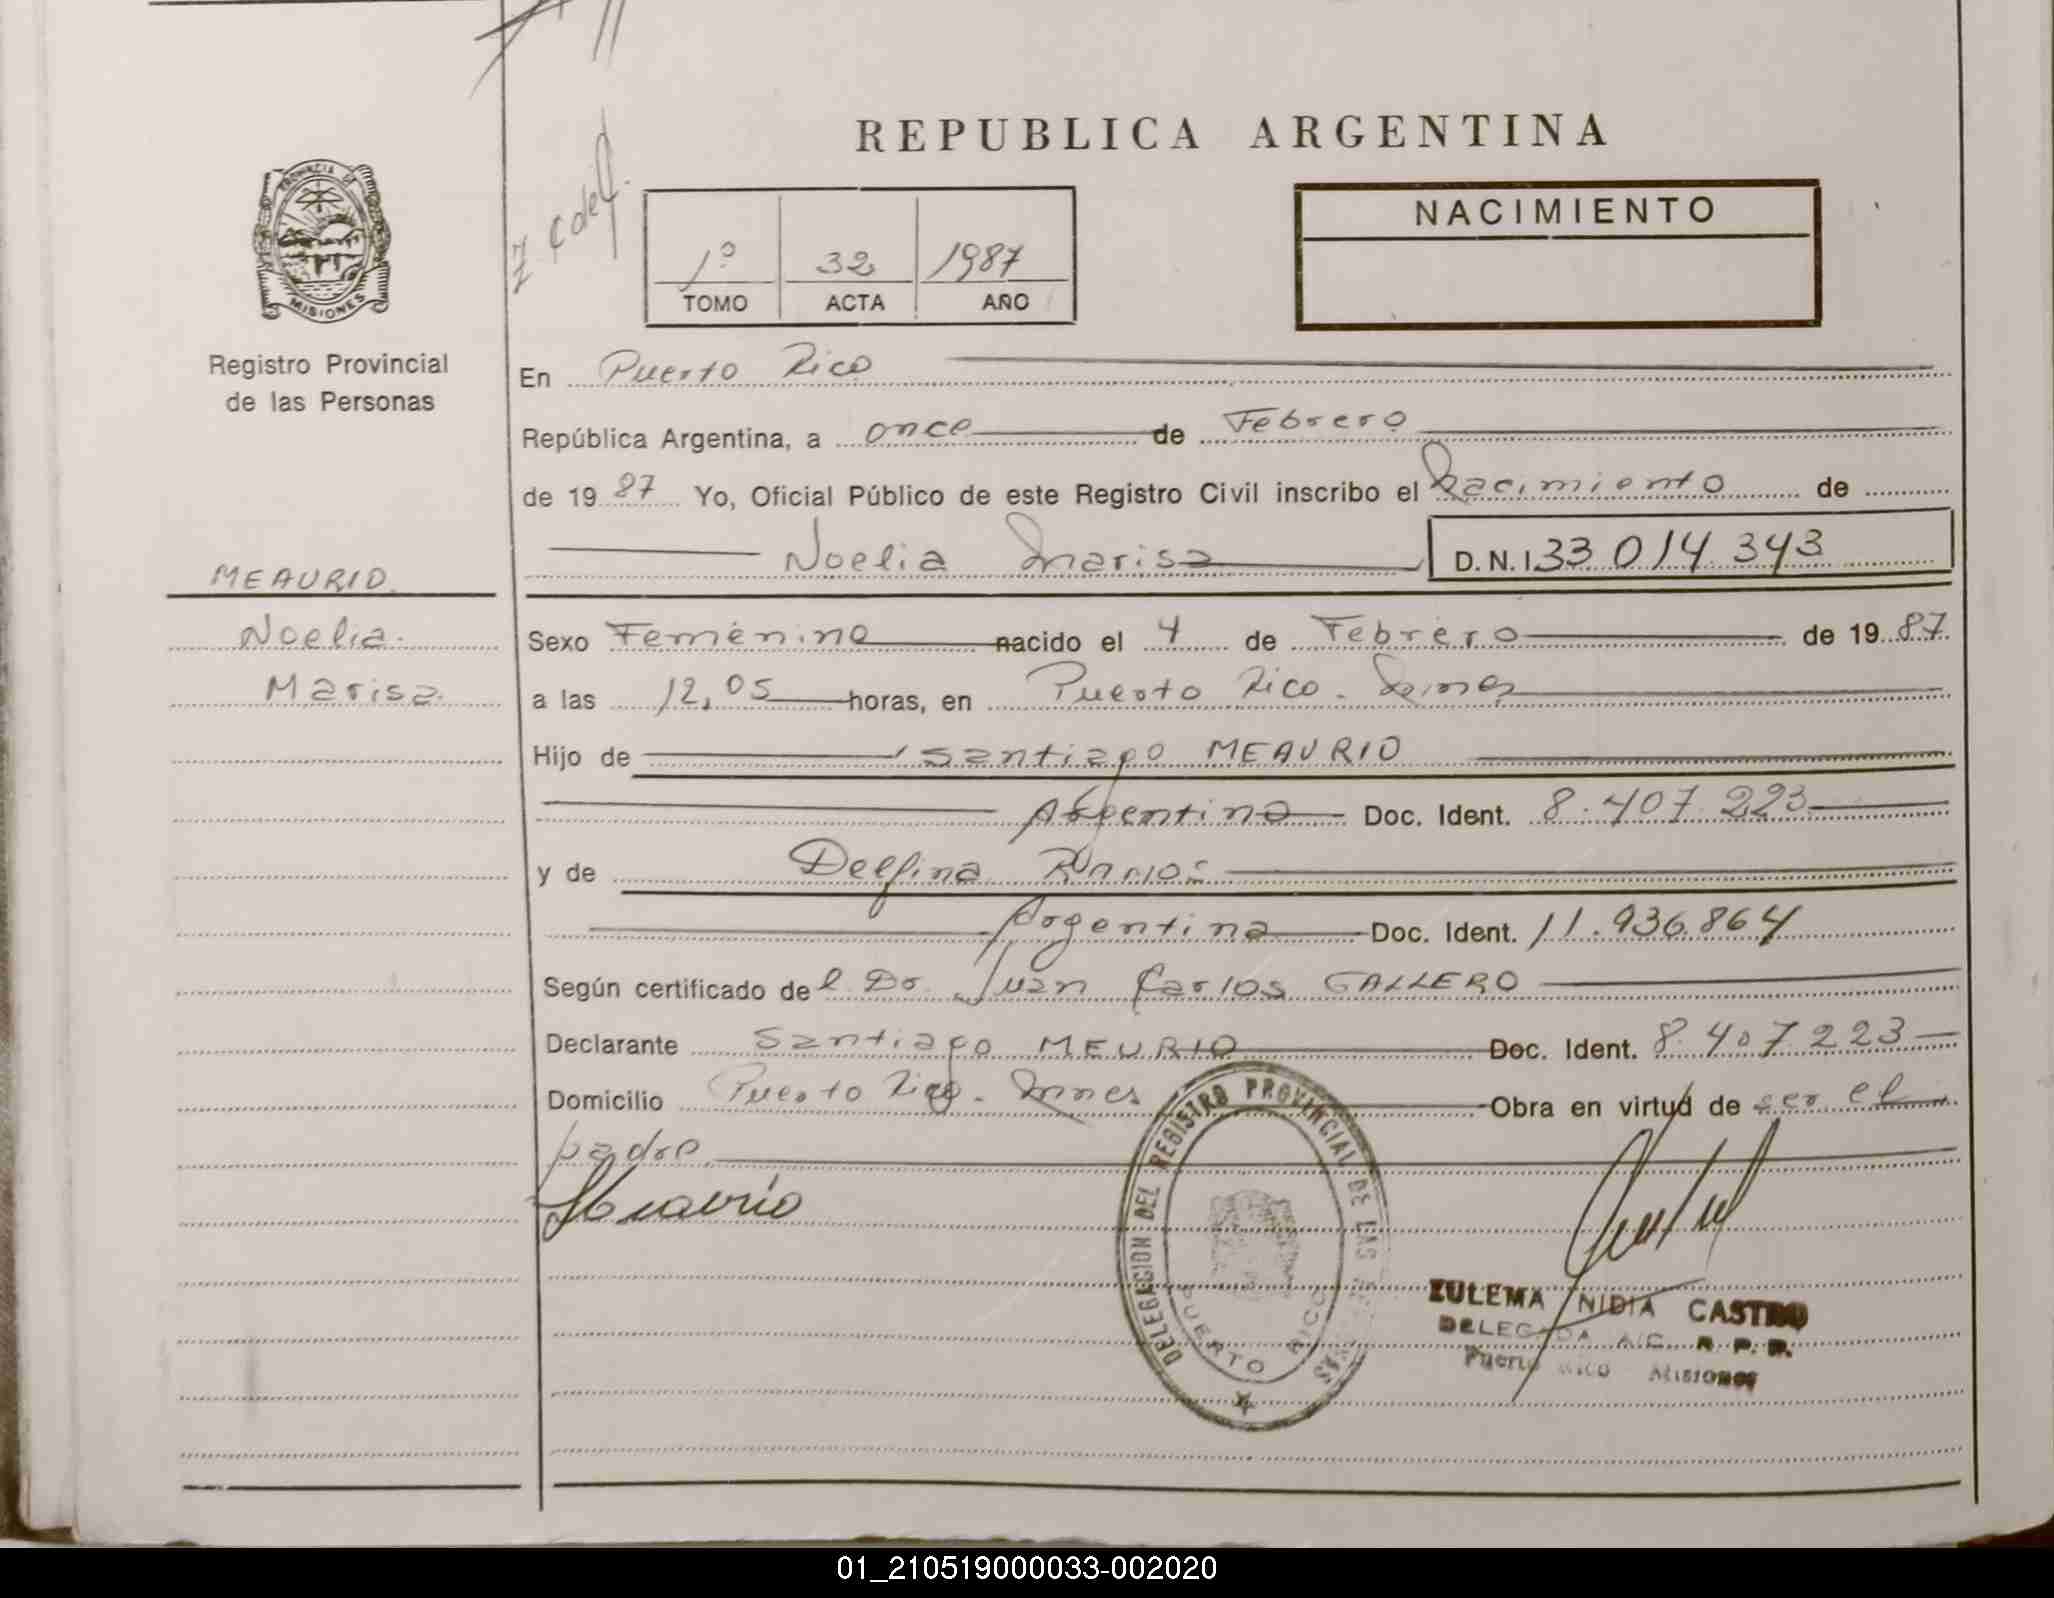 REPUBLICA ARGENTINA
PROVINCIA DE
MISIONES
Registro Provincial
de las Personas
1º 32 1987
TOMO ACTA AÑO
NACIMIENTO
En Puerto Rico
República Argentina, a once de Febrero
de 1987 Yo, Oficial Público de este Registro Civil inscribo el Nacimiento de
Noelia Marisa D.N.I. 33.014.343
MEAURIO
Noelia
Marisa
Sexo Femenino nacido el 4 de Febrero de 1987
a las 12,05 horas, en Puerto Rico - Mnes
Hijo de Santiago MEAURIO
Argentina Doc. Ident. 8.407.223
y de Delfina
Argentina Doc. Ident. 11.936.864
Según certificado del Dr. Juan Carlos GALLERO
Declarante Santiago MEURIO Doc. Ident. 8.407223
Domicilio Puerto Rico - Mnes Obra en virtud de ser el
padre
Meavrio
DELEGACION DEL REGISTRO PROVINCIAL DE LAS
PUERTO RICO
ZULEMA NIDIA CASTRO
DELEGADA A/C. R. P. P.
Puerto Rico Misiones
01_210519000033-002020